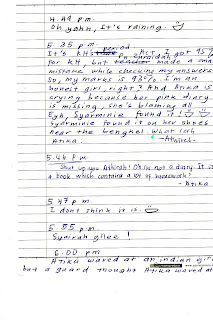 4.49 p.m.
Oh yeah, It's raining.
5.35 p.m.
period
It's KH. Pn. Zamidah. Act, I got 95%
for KH, but teacher made a small
mistake while checking my answers
So, my marks is 93%. I'm an
honest girl, right? And Atika is
crying because her pink diary
is missing, she's blaming all
Eyh, Syarminie found it!
Syarminie found it on her shoes
near the bengkel. What lah
Atika. -Athirah-
5.44 p.m.
Shut up you Athirah! Oh its not a diary. It is
a book which contains a lot of homework!
- Atika
5.47 p.m
I dont think it is.
5.55 p.m.
Syairah ghee!
6.00 p.m
Atika waved at an indian girl
but a guard thought Atika waved at